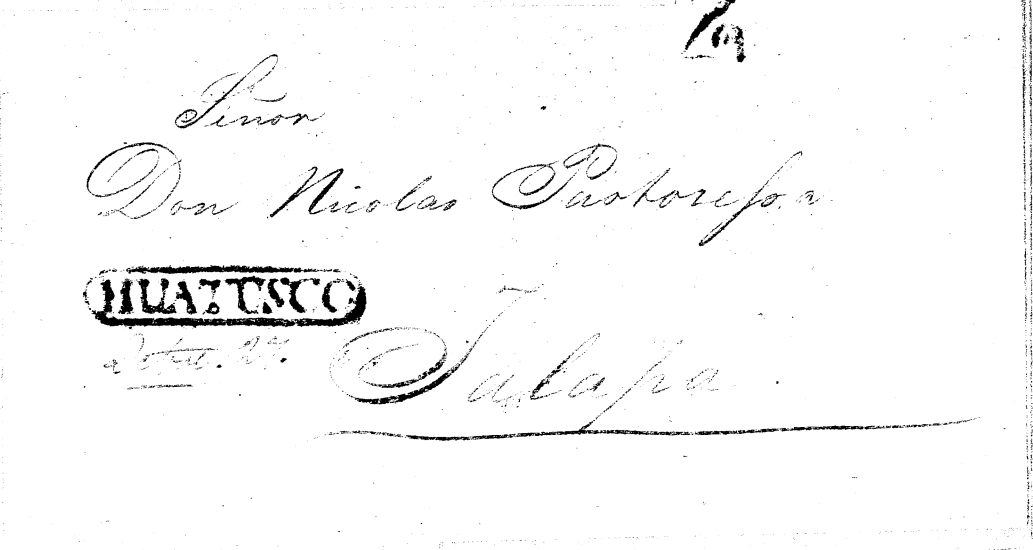 Señor
Don Nicolas Pastoressa
HUATUSCO
27.
Jalapa